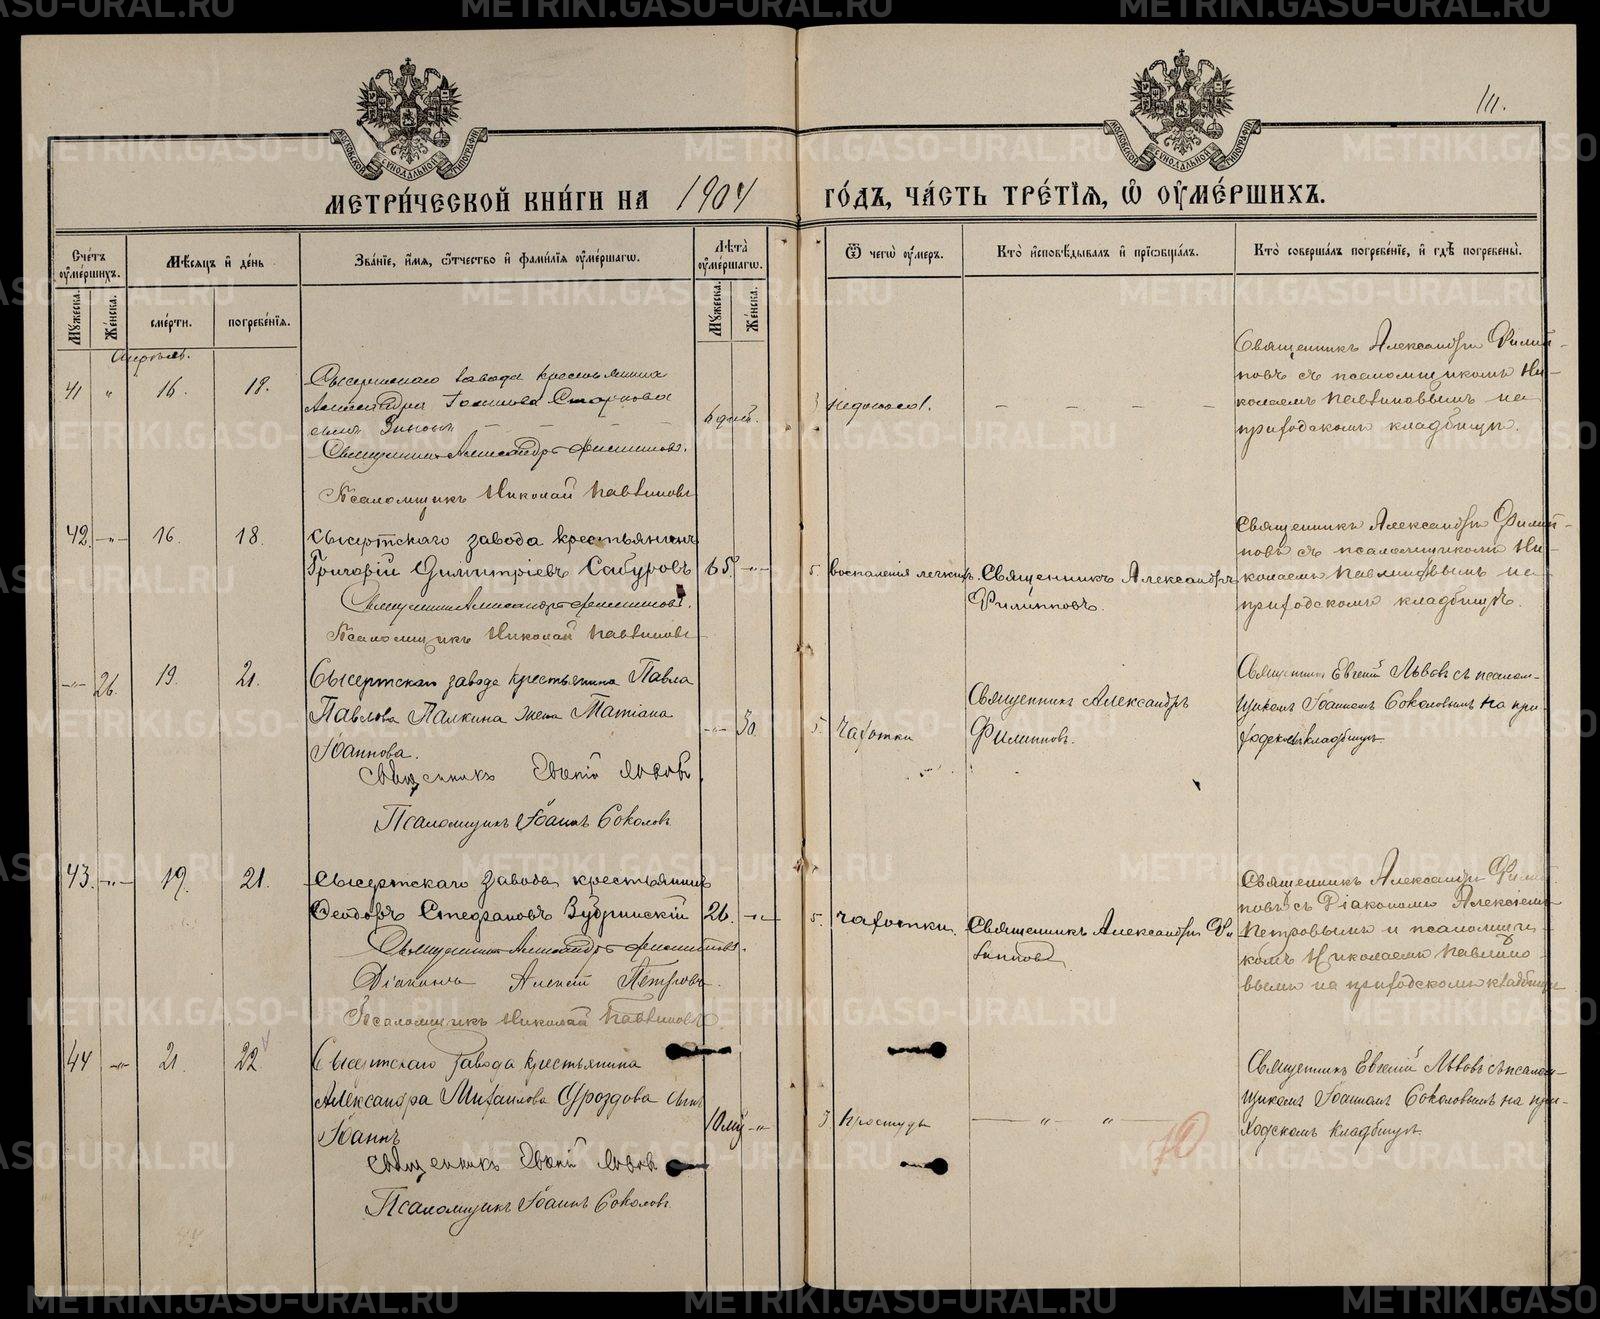 111.
МОСКОВСКОЙ СУНОДАЛЬНОЙ ТИПОГРАФІИ
МОСКОВСКОЙ СУНОДАЛЬНОЙ ТИПОГРАФІИ
МЕТРИ́ЧЕСКОЙ КНИ́ГИ НА 1904 ГО́ДЪ, ЧА́СТЬ ТРЕ́ТІѦ, Ѡ҆ ОУ҆МЕ́РШИХЪ.
Сче́тъ оу҆ме́ршихъ.
Мꙋ́жеска.
Же́нска.
Мѣ́сѧцъ и҆ де́нь
сме́рти.
погребе́нїѧ.
Зва́нїе, и҆́мѧ, ѻ҆́тчество и҆ фами́лїѧ оу҆ме́ршагѡ.
Лѣ́та оу҆ме́ршагѡ.
Мꙋ́жеска.
Же́нска.
Ѿ чегѡ̀ оу҆́меръ.
Кто̀ и҆сповѣ́дывалъ и҆ прїѡбща́лъ.
Кто̀ соверша́лъ погребе́нїе, и҆ гдѣ̀ погребены̀.
Апрѣль.
41 " 16. 18.
Сысертскаго завода крестьянина
Александра
сынъ
Священникъ Александръ Филипповъ.
Псаломщикъ Николай Павлиновъ
6 дней.
недоносо.
Священникъ Александръ Филип-
повъ съ псаломщикомъ Ни-
колаемъ Павлиновымъ на
приходскомъ кладбищѣ.
42. -"- 16. 18.
Сысертскаго завода крестьянинъ
Григорій Димитріевъ Сабуровъ
Священникъ Александръ Филипповъ.
Псаломщикъ Николай Павлиновъ
65. -"-
воспаленія легкихъ.
Священникъ Александръ
Филипповъ.
Священникъ Александръ Филип-
повъ съ псаломщикомъ Ни-
колаемъ Павлиновымъ на
приходскомъ кладбищѣ.
-"- 26. 19. 21.
Сысертскаго завода крестьянина Павла
Павлова Палкина жена Татіана
Іоаннова.
Священникъ Евгеній Львовъ.
Псаломщикъ Іоаннъ Соколовъ
-"- 30.
Чахотки
Священникъ Александръ
Филипповъ.
Священникъ Евгеній Львовъ съ псалом-
щикомъ Іоанномъ Соколовымъ на при-
ходскомъ кладбищѣ
43. -"- 19. 21.
Сысертскаго завода крестьянинъ
Ѳеодоръ Стефановъ Зубринскій
Священникъ Александръ Филипповъ.
Діаконъ Алексій Петровъ.
Псаломщикъ Николай Павлиновъ.
26. -"-
чахотки.
Священникъ Александръ Фи
липповъ
Священникъ Александръ Филип
повъ съ Діакономъ Алексіемъ
Петровымъ и псаломщи-
комъ Николаемъ Павлино-
вымъ на приходскомъ кладбищѣ
44 -"- 21. 22
Сысертскаго завода крестьянина
Александра Михаилова Дроздова сынъ
Іоаннъ
Священникъ Евгеній Львовъ
Псаломщикъ Іоаннъ Соколовъ
-"-
Простуды
" "
Священникъ Евгеній Львовъ съ псалом-
щикомъ Іоанномъ Соколовымъ на при-
ходскомъ кладбищѣ
METRIKI.GASO-URAL.RU